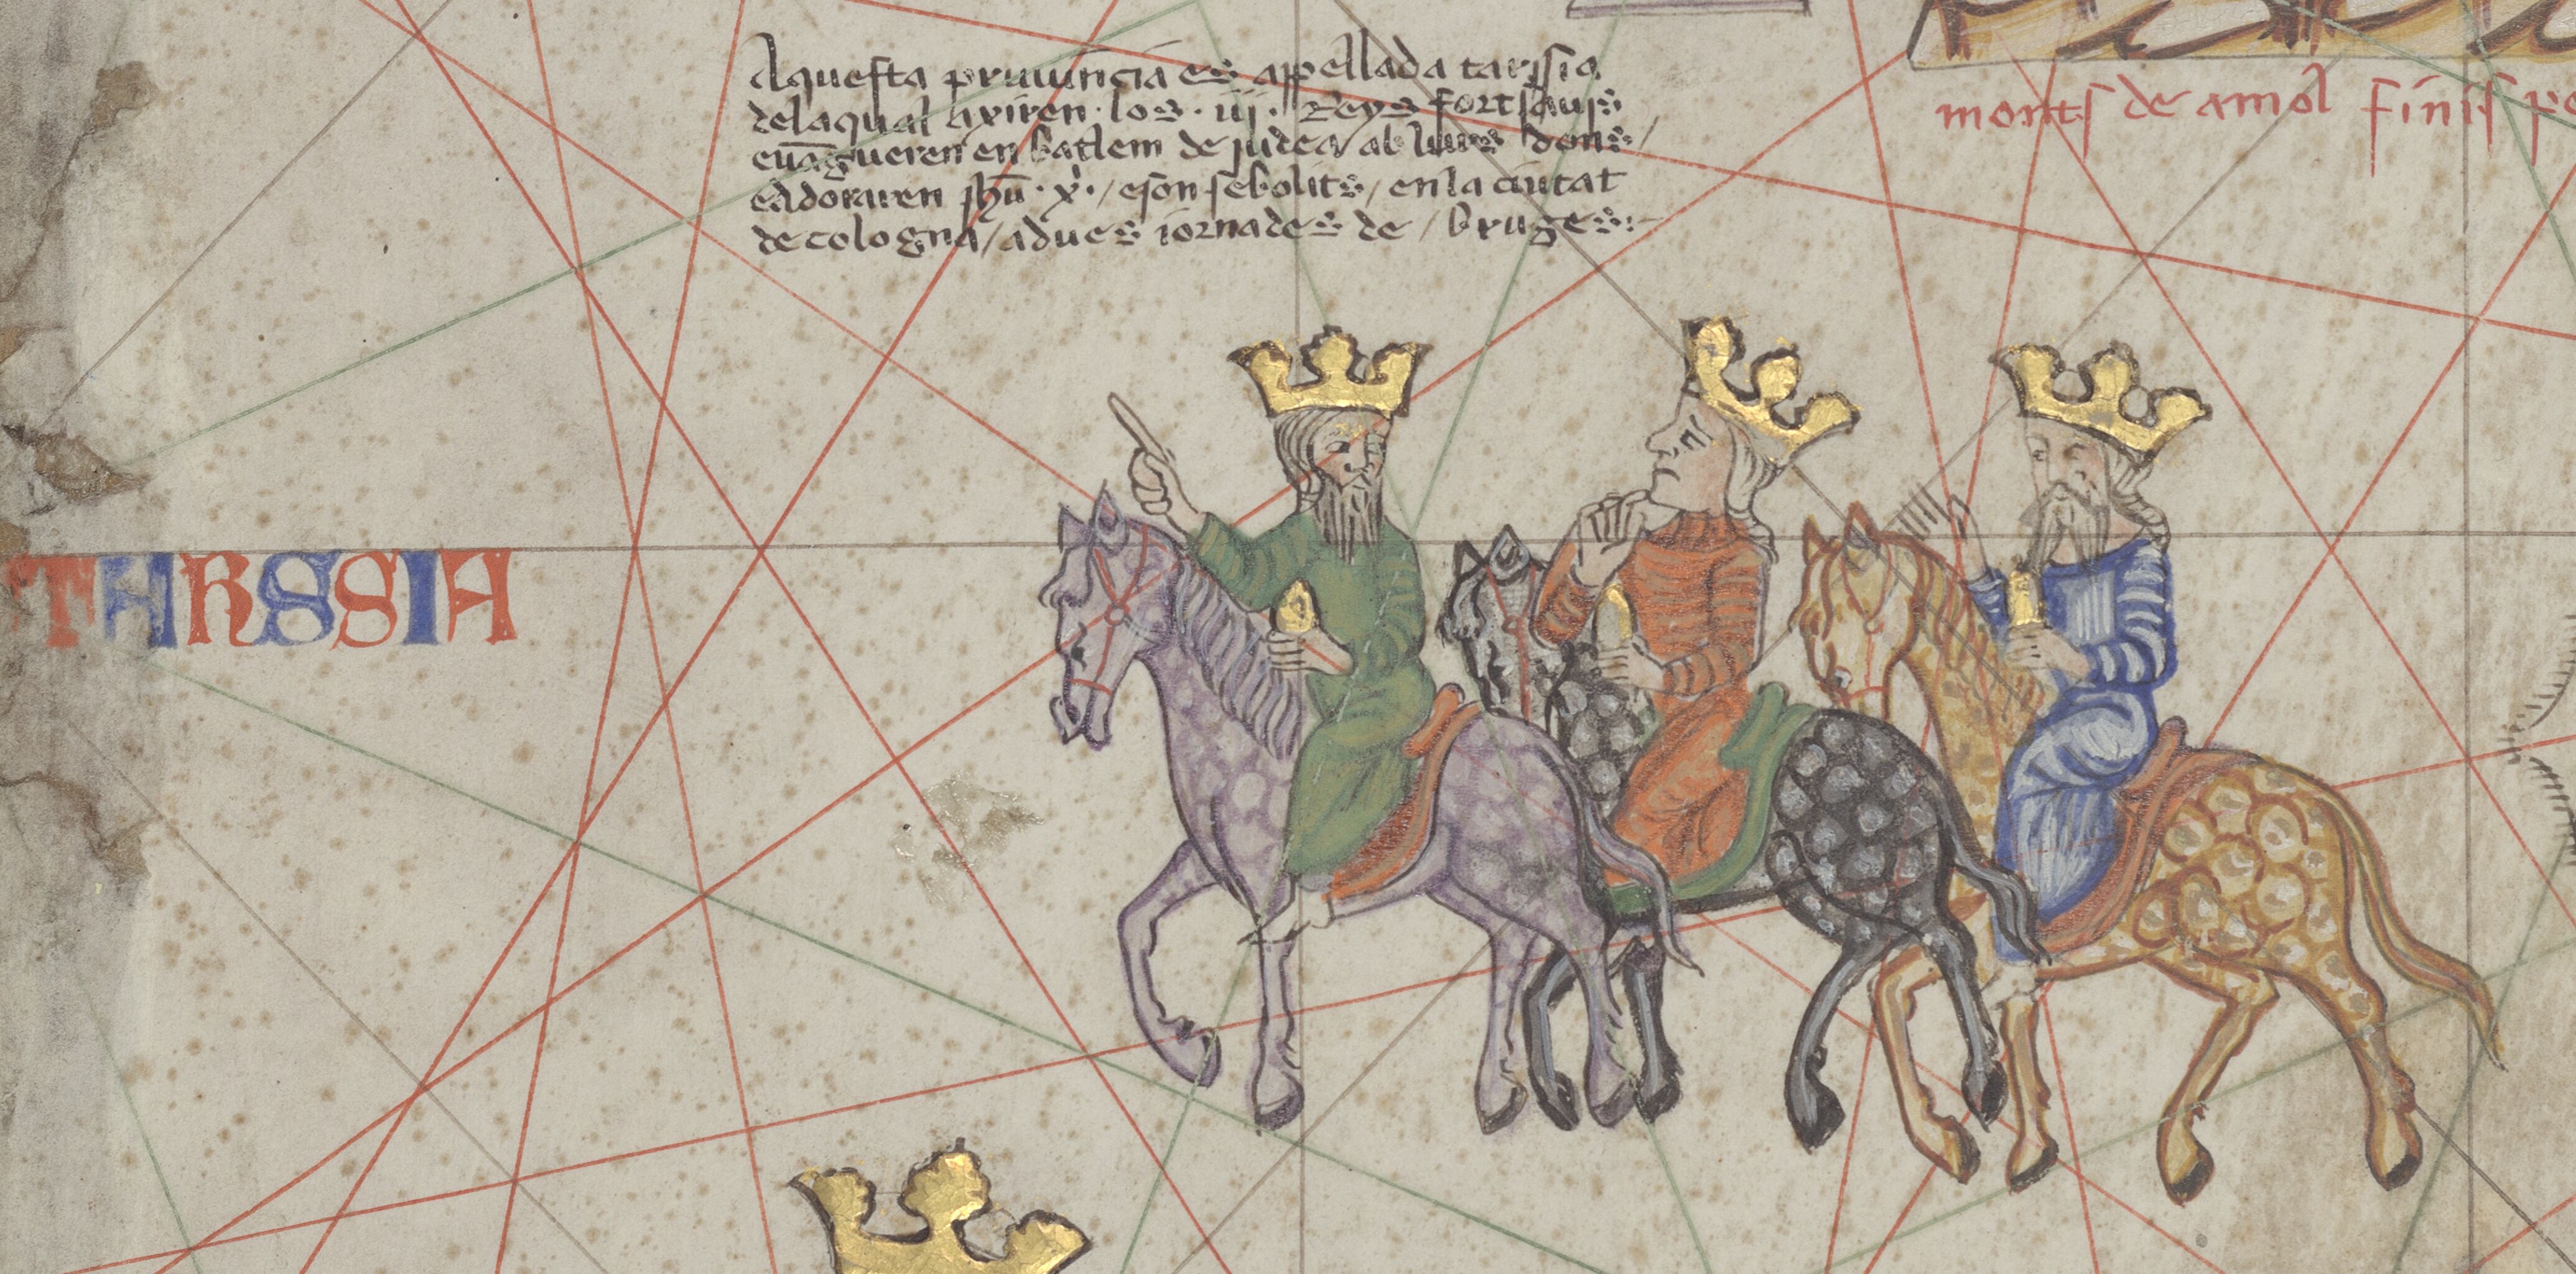 Aquesta pruuincia es appellada tarssia
delaqual axiren · los · iij · Reys fort sauis
euāgueren en batlem de judea ab lurs dons /
eadoraren jhū · x̄ · / eson sebolits / en la ciutat
de cologna / adues iornades de / bruges :
monts de amol finis p
TARSSIA